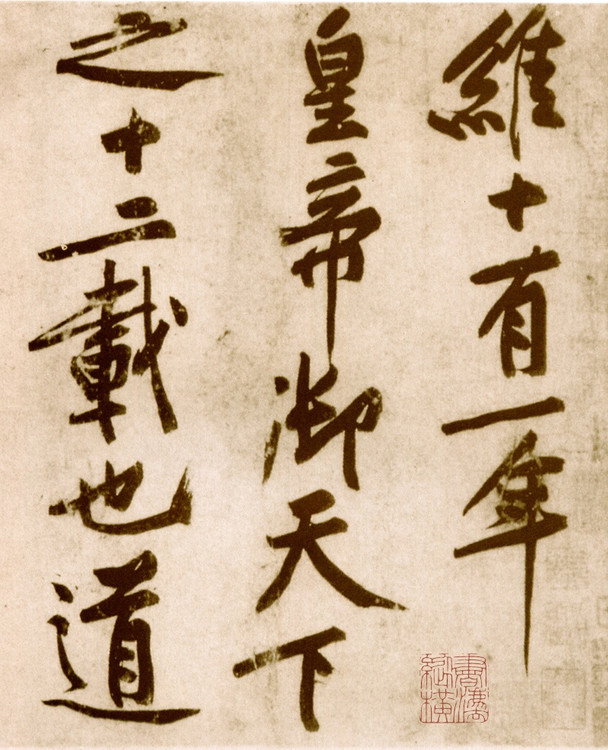 維十有一年
皇帝御天下
之十二載也道
書灋
縱橫